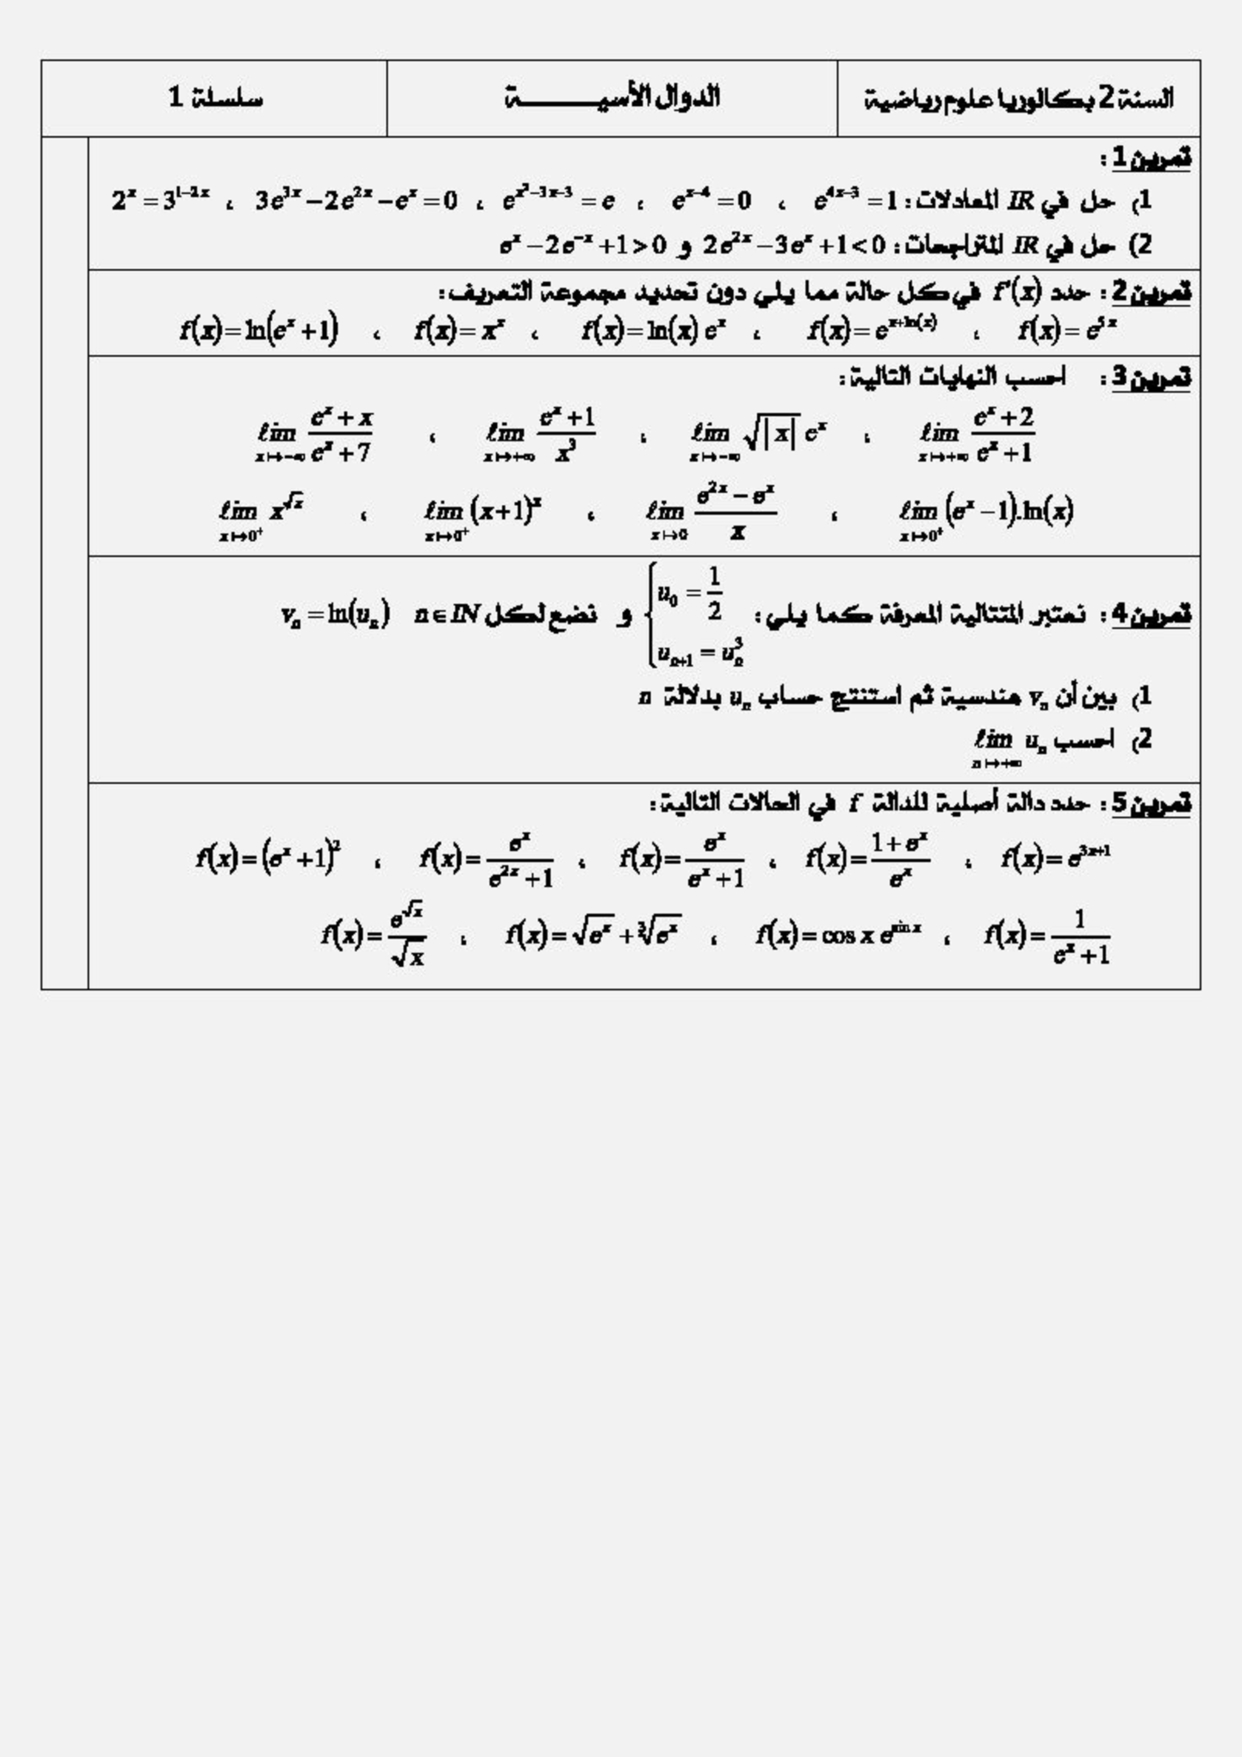 السنة 2 بكالوريا علوم رياضية
الدوال الأسيـــــــــة
سلسلة 1
تمرين 1 :
1) حل في IR المعادلات : e^{4x-3} = 1 ، e^{x-4} = 0 ، e^{x²-3x-3} = e ، 3e^{3x} - 2e^{2x} - e^x = 0 ، 2^x = 3^{1-2x}
2) حل في IR المتراجحات : 2e^{2x} - 3e^x + 1 < 0 و e^x - 2e^{-x} + 1 > 0
تمرين 2 : حدد f'(x) في كل حالة مما يلي دون تحديد مجموعة التعريف :
f(x) = e^{5x} ، f(x) = e^{x+ln(x)} ، f(x) = ln(x) e^x ، f(x) = x^x ، f(x) = ln(e^x + 1)
تمرين 3 : احسب النهايات التالية :
ℓim_{x↦+∞} (e^x + 2)/(e^x + 1) ، ℓim_{x↦-∞} √|x| e^x ، ℓim_{x↦+∞} (e^x + 1)/x³ ، ℓim_{x↦-∞} (e^x + x)/(e^x + 7)
ℓim_{x↦0⁺} (e^x - 1).ln(x) ، ℓim_{x↦0} (e^{2x} - e^x)/x ، ℓim_{x↦0⁺} (x+1)^x ، ℓim_{x↦0⁺} x^{√x}
تمرين 4 : نعتبر المتتالية المعرفة كما يلي : { u_0 = 1/2 ; u_{n+1} = u_n^3 و نضع لكل n ∈ IN v_n = ln(u_n)
1) بين أن v_n هندسية ثم استنتج حساب u_n بدلالة n
2) احسب ℓim_{n↦+∞} u_n
تمرين 5 : حدد دالة أصلية للدالة f في الحالات التالية :
f(x) = e^{3x+1} ، f(x) = (1 + e^x)/e^x ، f(x) = e^x/(e^x + 1) ، f(x) = e^x/(e^{2x} + 1) ، f(x) = (e^x + 1)²
f(x) = 1/(e^x + 1) ، f(x) = cos x e^{sin x} ، f(x) = √e^x + ³√e^x ، f(x) = e^{√x}/√x